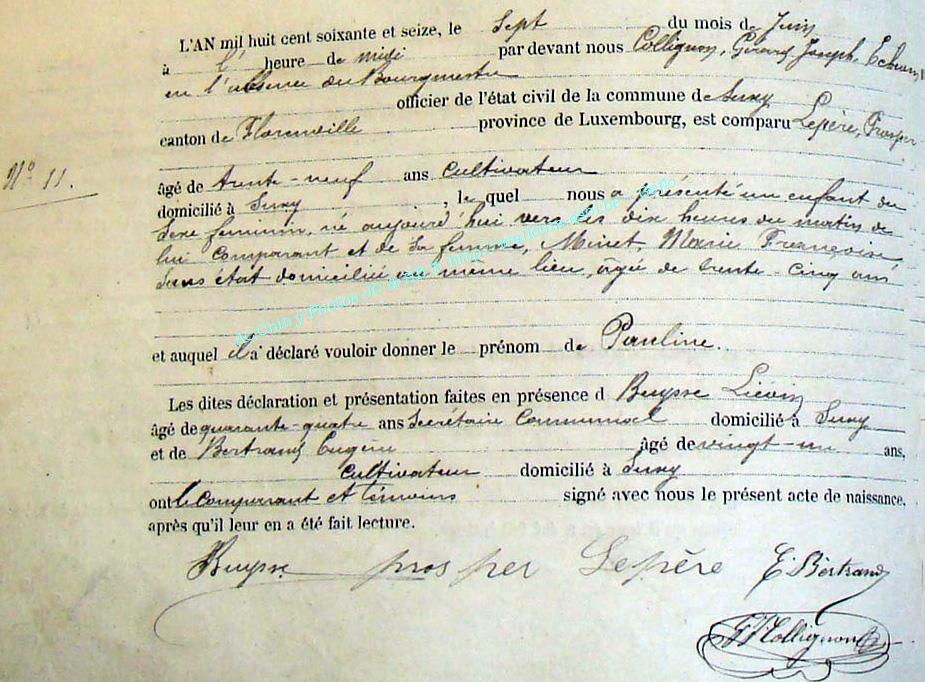 L'AN mil huit cent soixante et seize, le Sept du mois de Juin
à l' heure de midi par devant nous Collignon, Gérard Joseph, Echevin,
en l'absence du Bourgmestre
officier de l'état civil de la commune de Suxy
canton de Florenville province de Luxembourg, est comparu Lepère, Prosper
N° 11.
âgé de trente-neuf ans cultivateur
domicilié à Suxy, le quel nous a présenté un enfant du
sexe féminin, né aujourd'hui vers les dix heures du matin de
lui comparant et de sa femme, Minet, Marie Françoise,
sans état domiciliée au même lieu, âgée de trente-cinq ans
et auquel il a déclaré vouloir donner le prénom de Pauline.
Les dites déclaration et présentation faites en présence d Buysse Liévin
âgé de quarante-quatre ans Secrétaire Communal domicilié à Suxy
et de Bertrand Eugène âgé de vingt-un ans,
cultivateur domicilié à Suxy
ont le comparant et témoins signé avec nous le présent acte de naissance,
après qu'il leur en a été fait lecture.
Buysse prosper Lepère E. Bertrand
G J Collignon